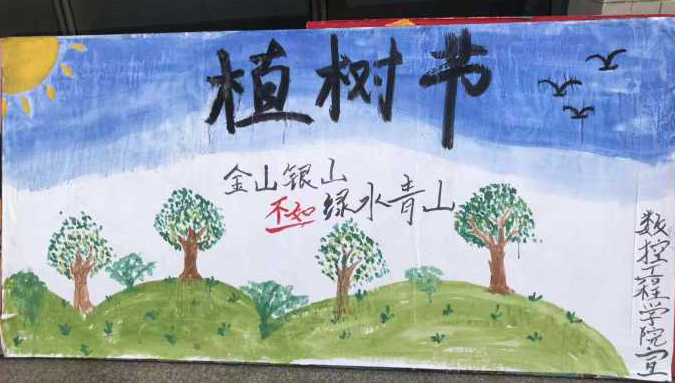 植树节
金山银山
不如绿水青山
数控工程学院宣